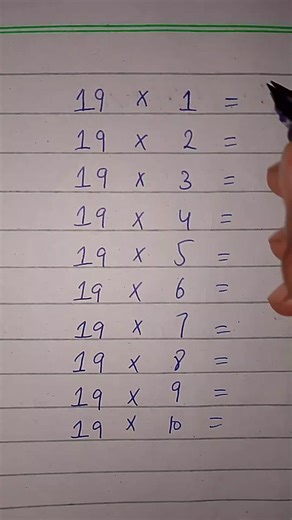 19 × 1 =
19 × 2 =
19 × 3 =
19 × 4 =
19 × 5 =
19 × 6 =
19 × 7 =
19 × 8 =
19 × 9 =
19 × 10 =